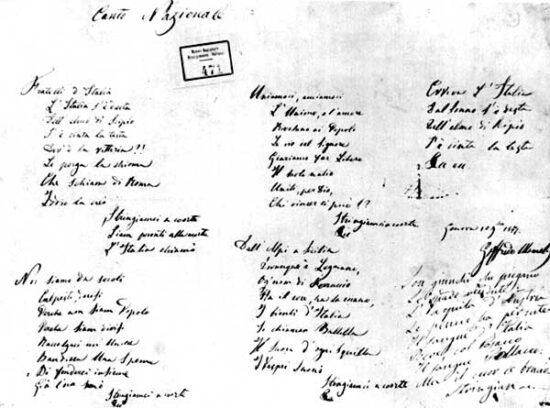 Canto Nazionale
471
Fratelli d'Italia
L'Italia s'è desta
Dell'elmo di Scipio
S'è cinta la testa
Dov'è la vittoria?!
Le porga la chioma
Che schiava di Roma
Iddio la creò
Stringiamci a coorte
Siam pronti alla morte
L'Italia chiamò
Noi siamo da secoli
Calpesti, derisi
Perché non siam Popolo
Perché siam divisi
Raccolgaci un'Unica
Bandiera una Speme
Di fonderci insieme
Già l'ora suonò
Stringiamci a coorte
Uniamoci, amiamoci
L'Unione, e l'amore
Rivelano ai Popoli
Le vie del Signore
Giuriamo far Libero
Il suolo natio
Uniti, per Dio,
Chi vincer ci può!?
Stringiamci a coorte
Dall'Alpi a Sicilia
Dovunque è Legnano,
Ogn'uom di Ferruccio
Ha il core, ha la mano,
I bimbi d'Italia
Si chiaman Balilla
Il Suon d'ogni Squilla
I Vespri Suonò
Stringiamci a coorte
Evviva l'Italia
Dal sonno s'è desta
Dell'elmo di Scipio
S'è cinta la testa
Genova
Goffredo Mameli
Son giunchi che piegano
Le Spade vendute
L'Aquila d'Austria
Le penne ha perdute
Il sangue d'Italia
Il sangue Polacco
Ma il cuor le bruciò
Stringiamci